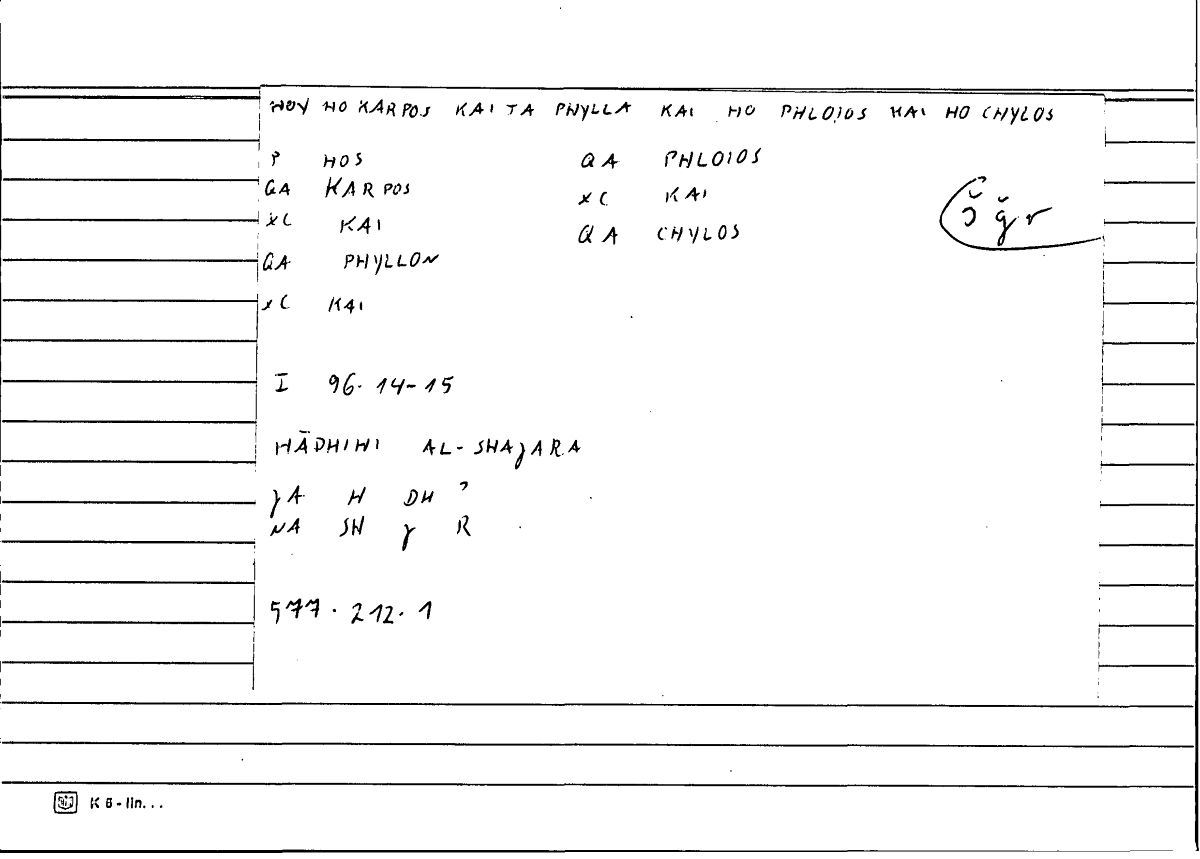 HOY HO KARPOS KAI TA PHYLLA KAI HO PHLOIOS KAI HO CHYLOS
P HOS QA PHLOIOS
QA KARPOS XC KAI
XC KAI QA CHYLOS
QA PHYLLON
XC KAI
I 96.14-15
HĀDHIHI AL-SHAJARA
JA H DH ʾ
NA SH J R
577.212.1
K 6 - lin...